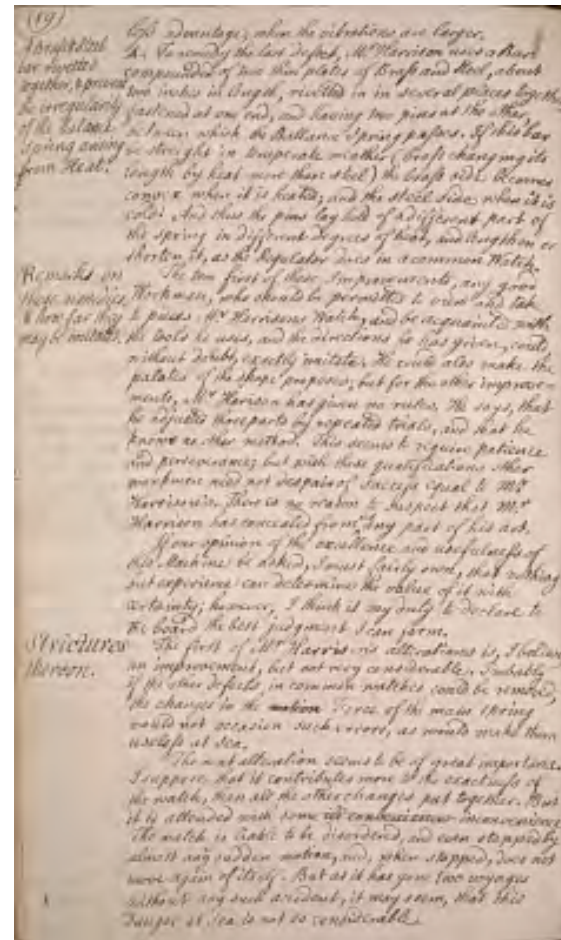 (19)
A brass & steel
bar rivetted
together, to prevent
the irregularity
of the balance
Spring arising
from Heat.
less advantage, when the vibrations are larger.
4. To remedy the last defect, Mr Harrison uses a Bar
compounded of two thin plates of Brass and Steel, about
two inches in length, rivetted in several places together
fastened at one end, and having two pins at the other,
between which the Ballance Spring passes. If this bar
be streight in temperate weather (brass changing its
length by heat more than steel) the brass side becomes
convex when it is heated, and the steel side when it is
cold: And thus the pins lay hold of a different part of
the spring in different degrees of heat, and lengthen or
shorten it, as the Regulator does in a common Watch.
Remarks on
these remedies,
& how far they
may be imitated.
The two first of these Improvements, any good
Workman, who should be permitted to view and take
to pieces Mr Harrisons Watch, and be acquainted with
the tools he uses, and the directions he has given, could
without doubt, exactly imitate. He could also make the
palates of the shape proposed; but for the other improve-
ments, Mr Harrison has given no rules. He says, that
he adjusted those parts by repeated trials, and that he
knows no other method. This seems to require patience
and perseverance; but with these qualifications other
workmen need not despair of success equal to Mr
Harrison's. There is no reason to suspect that Mr
Harrison has concealed from any part of his art.
If our opinion of the excellence and usefulness of
this Machine be asked, I must fairly own, that nothing
but experience can determine the value of it with
certainty; however, I think it my duty to declare to
the board the best judgment I can form.
Strictures
thereon.
The first of Mr Harrisons alterations is, I believe
an improvement, but not very considerable. Probably
if the other defects in common watches could be removed,
the changes in the motion Force of the main spring
would not occasion such errors, as would make them
useless at Sea.
The next alteration seems to be of great importance.
I suppose, that it contributes more to the exactness of
the watch, than all the other changes put together. But
it is attended with some inconvenience
The watch is liable to be disordered, and even stopped by
almost any sudden motion, and, when stopped, does not
move again of itself. But as it has gone two voyages
without any such accident, it may seem, that this
danger at Sea is not so considerable.